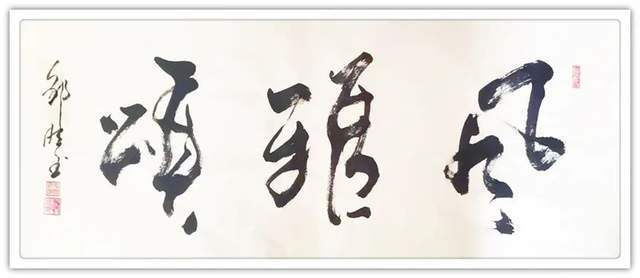 風雅頌